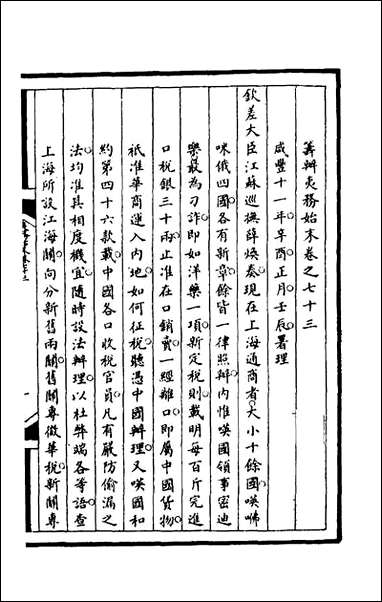 籌辦夷務始末卷之七十三
咸豐十一年辛酉正月壬辰署理
欽差大臣江蘇巡撫薛煥奏現在上海通商者大小十餘國㗎㗎
咪俄四國各有新章餘皆一律照辦內惟㗎國領事密迪
樂最為刁詐即如洋藥一項新定稅則載明每百斤完進
口稅銀三十兩止准在口銷賣一經離口即屬中國貨物
祇准華商運入內地如何征稅聽憑中國辦理又㗎國和
約第四十六款載中國各口收稅官員凡有嚴防偷漏之
法均准其相度機宜隨時設法辦理以杜弊端各等語查
上海所設江海關向分新舊兩關舊關專徵華稅新關專